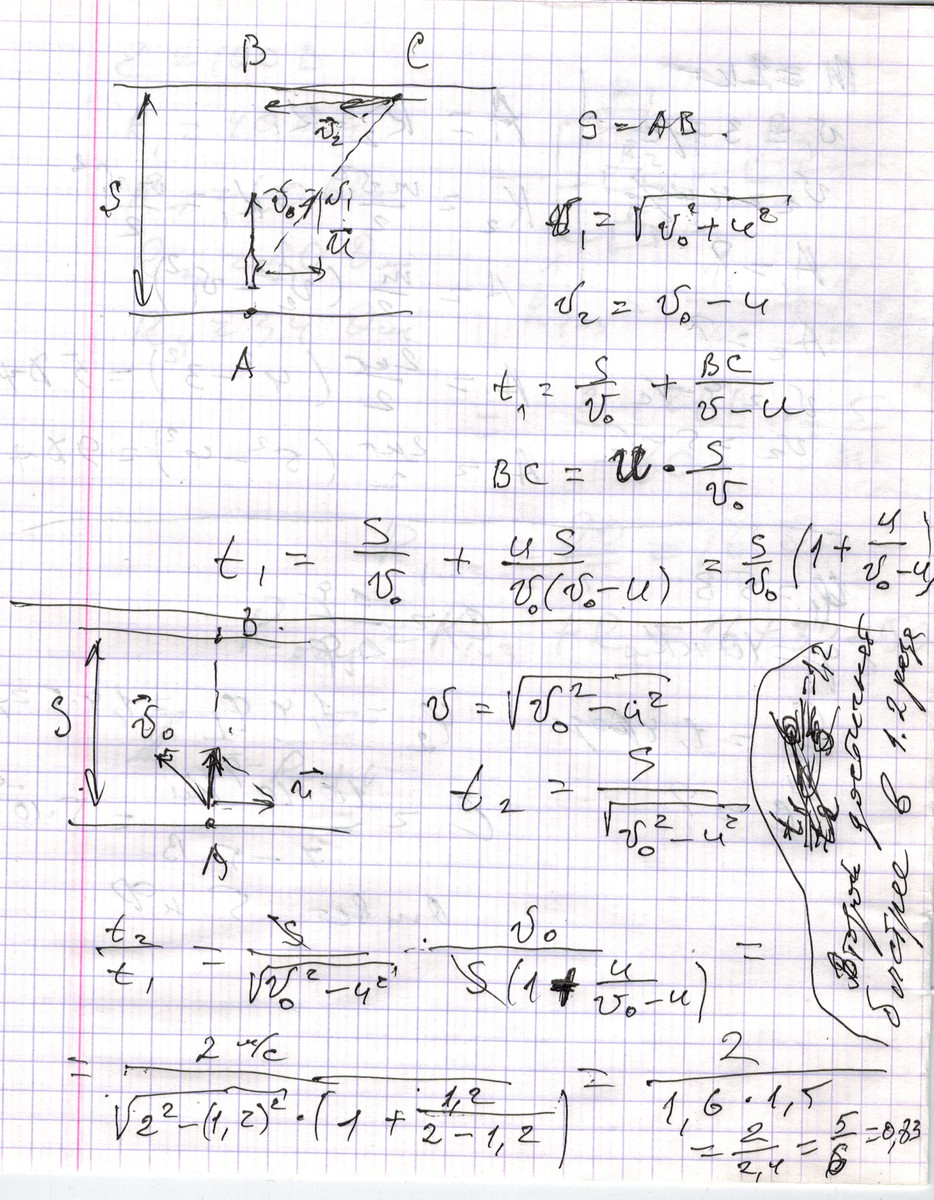 B C
S v⃗₂
S = AB.
v⃗₀ v⃗₁
u⃗
A
v₁ = √(v₀² + u²)
v₂ = v₀ - u
t₁ = S/v₀ + BC/(v - u)
BC = u · S/v₀
t₁ = S/v₀ + uS/(v₀(v₀ - u)) = S/v₀ (1 + u/(v₀ - u))
B
S v⃗₀ u⃗
A
v = √(v₀² - u²)
t₂ = S/√(v₀² - u²)
= 1,2
Второй достигнет
быстрее в 1.2 раза
t₂/t₁ = S/√(v₀² - u²) · v₀/(S(1 + u/(v₀ - u))) =
= 2 м/с/(√(2² - (1,2)²) · (1 + 1,2/(2 - 1,2))) = 2/(1,6 · 1,5)
= 2/2,4 = 5/6 = 0,83